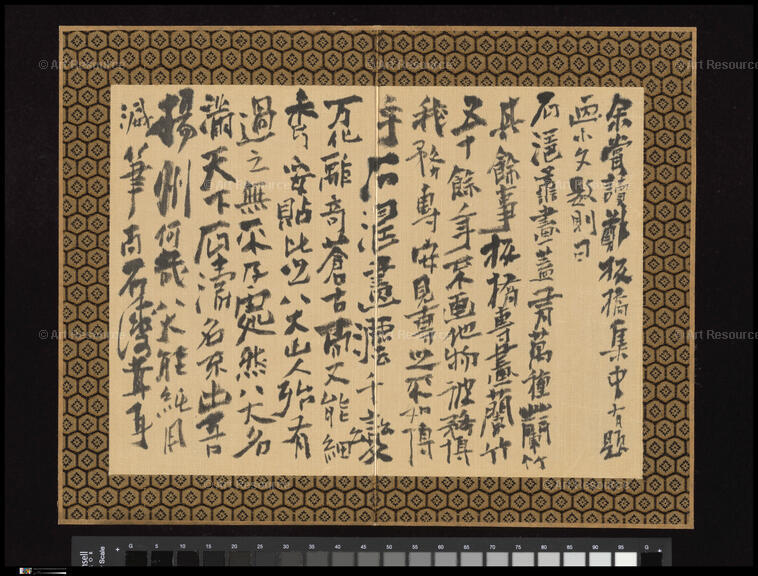 余嘗讀鄭板橋集中有題
画小文數則曰
石濤善畫蓋有萬種蘭竹
其餘事板橋專畫蘭竹
五十餘年不画他物彼務博
我務專安見專之不如博
乎石濤畫法千變
万化離奇蒼古而又能細
秀妥貼比之八大山人殆有
過之無不及處然八大名
滿天下石濤名不出吾
揚州何哉八大能純用
減筆而石濤茸耳
© Art Resource
© Art Resource
© Art Resource
© Art Resource
© Art Resource
© Art Resource
G 5 10 15 20 25 30 35 40 45 50 55 60 65 70 75 80 85 90 95 G
Scale